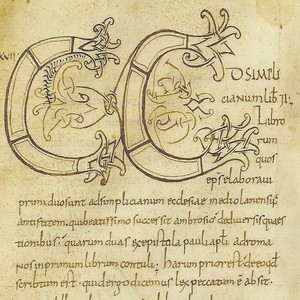 XVII
D SIMPLI
CIANUM LIB II:
Libro
rum
quos
eps elaboraui
primi duo sunt ad simplicianum ecclesiae mediolanensis
antistitem. qui beatissimo successit ambrosio dediuersis quaes
tionibus. quarum duas ex epistola pauli apli ad roma
nos in primum librum contuli. Harum prior est de eo qd
scriptum est. quid ergo dicemus lex peccatum est absit.